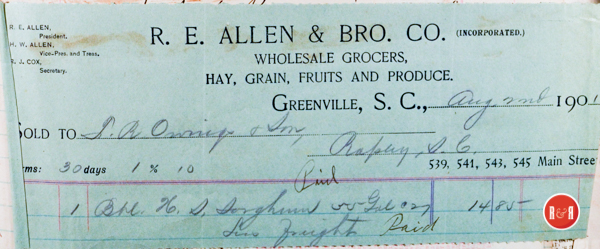 R. E. ALLEN,
President.
H. W. ALLEN,
Vice-Pres. and Treas.
B. J. COX,
Secretary.
R. E. ALLEN & BRO. CO. (INCORPORATED.)
WHOLESALE GROCERS,
HAY, GRAIN, FRUITS AND PRODUCE.
GREENVILLE, S. C., Aug 2nd 190
SOLD TO & Son,
S. C.
30 days 1 % 10 Paid 539, 541, 543, 545 Main Stree
1 Bbl. N. O. Sorghum 14 85
Less freight Paid
R&R